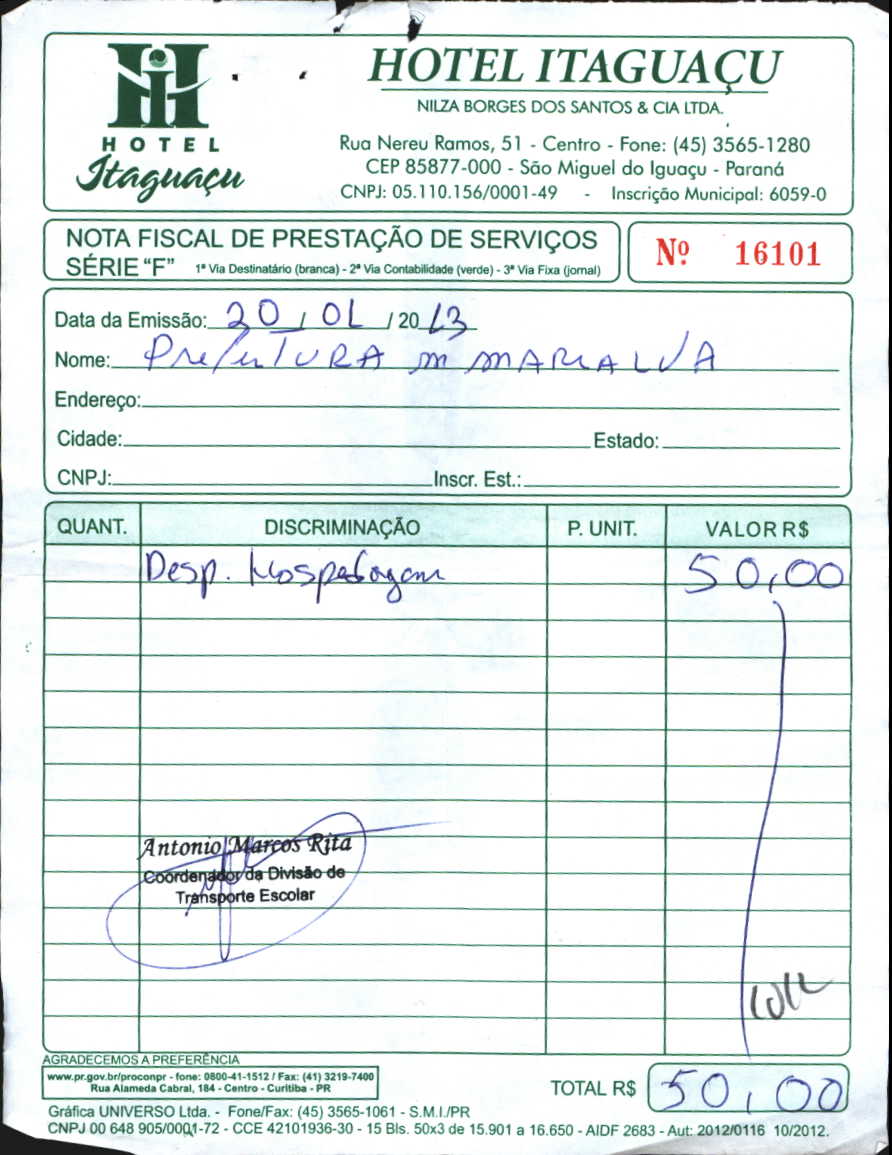 HOTEL
Itaguaçu
HOTEL ITAGUAÇU
NILZA BORGES DOS SANTOS & CIA LTDA.
Rua Nereu Ramos, 51 - Centro - Fone: (45) 3565-1280
CEP 85877-000 - São Miguel do Iguaçu - Paraná
CNPJ: 05.110.156/0001-49 - Inscrição Municipal: 6059-0
NOTA FISCAL DE PRESTAÇÃO DE SERVIÇOS
SÉRIE “F” 1ª Via Destinatário (branca) - 2ª Via Contabilidade (verde) - 3ª Via Fixa (jornal)
Nº 16101
Data da Emissão: 20 / 01 / 20 13
Nome: Prefeitura m MARIALVA
Endereço:
Cidade: Estado:
CNPJ: Inscr. Est.:
QUANT. DISCRIMINAÇÃO P. UNIT. VALOR R$
Desp. Hospedagem 50,00
Antonio Marcos Rita
Coordenador da Divisão de
Transporte Escolar
AGRADECEMOS A PREFERÊNCIA
www.pr.gov.br/proconpr - fone: 0800-41-1512 / Fax: (41) 3219-7400
Rua Alameda Cabral, 184 - Centro - Curitiba - PR
TOTAL R$ 50,00
Gráfica UNIVERSO Ltda. - Fone/Fax: (45) 3565-1061 - S.M.I./PR
CNPJ 00 648 905/0001-72 - CCE 42101936-30 - 15 Bls. 50x3 de 15.901 a 16.650 - AIDF 2683 - Aut: 2012/0116 10/2012.